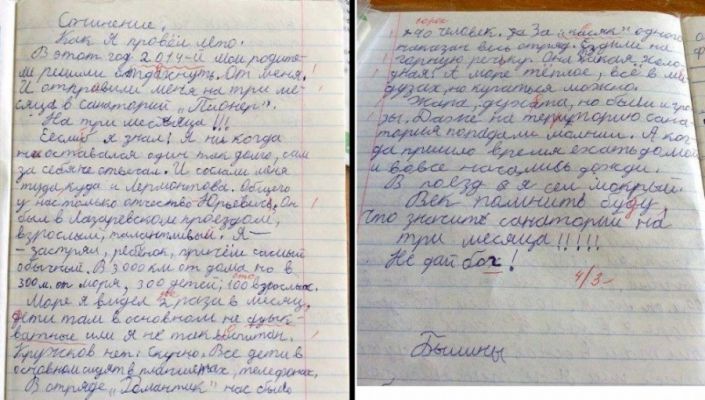 Сочинение.
Как Я провёл лето.
В этот год 2014-й мои родите-
ли решили отдахнуть. От меня.
И отправили меня на три ме-
сяца в санаторий "Пионер".
На три месяыца !!!
Еесли б я знал! Я ни когда
ни оставался один так долго, сам
за себя не отвечал. И сослали меня
туда, куда и Лермонтова. Общего
у нас только отчество Юрьевич. Он
был в Лазаревском проездом,
взрослым, талантливый. Я —
— застрял, ребёнок, причём самый
обычный. В 3000 км от дома но в
300 м. от моря, 300 детей, 100 взрослых.
сто
Море я видел 2 раза в месяц,
два
дети там в основном не адык-
ватные или я не так воспитан.
Кружков нет. Скучно. Все дети в
основном сидят в планшетах, телефонах.
В отряде "Романтик" нас было
сорок
40 человек. Да За "касяк" одного
наказан весь отряд. Ездили на
горную речьку. Она такая холо-
дная! А море тёплое, всё в ме-
дузах, но купаться можно.
Жара, духата, но были и гро-
зы. Даже на территорию сана-
тория попадали молнии. А ког-
да пришло время ехать домой
и вовсе начались дожди.
В поезд я сел мокрый.
Век помнить буду,
что значить санаторий на
три месяца !!!!!
Не дай бог!
4/3-
Былины